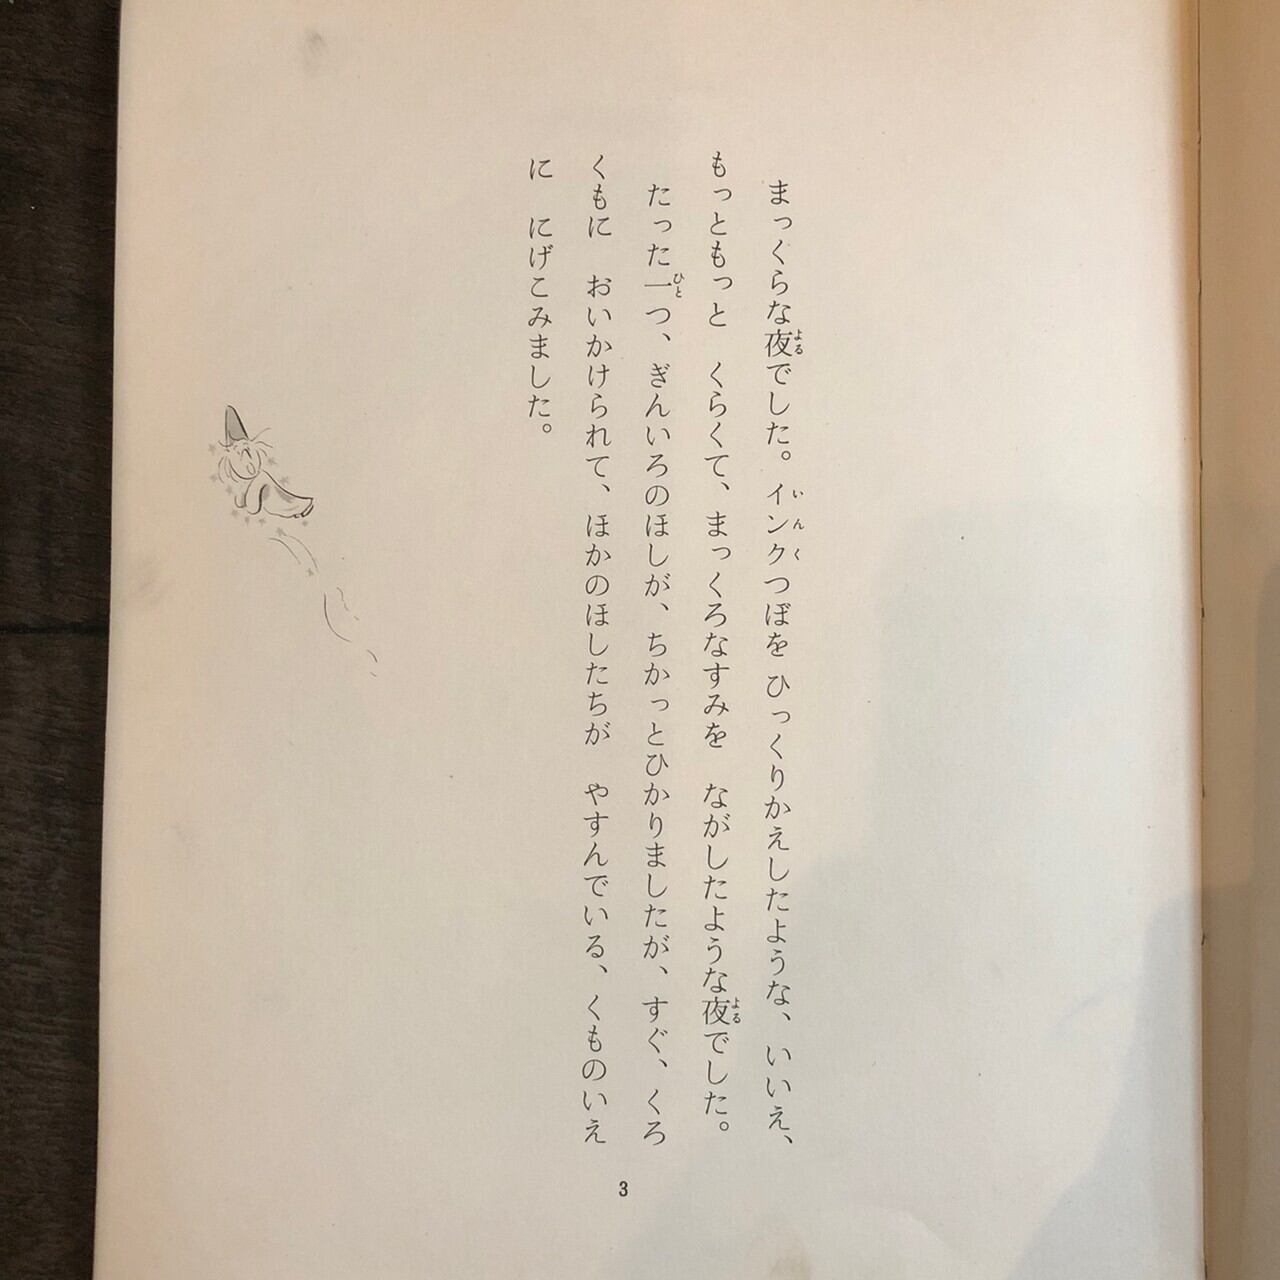 まっくらな夜でした。インクつぼを ひっくりかえしたような、いいえ、
もっともっと くらくて、まっくろなすみを ながしたような夜でした。
たった一つ、ぎんいろのほしが、ちかっとひかりましたが、すぐ、くろ
くもに おいかけられて、ほかのほしたちが やすんでいる、くものいえ
に にげこみました。
よる
いんく
よる
ひと
3